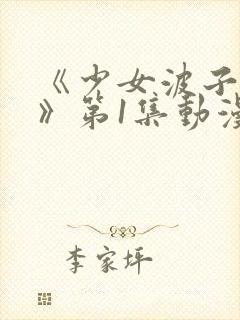 《少女波子
》第1集動漫
李家坪